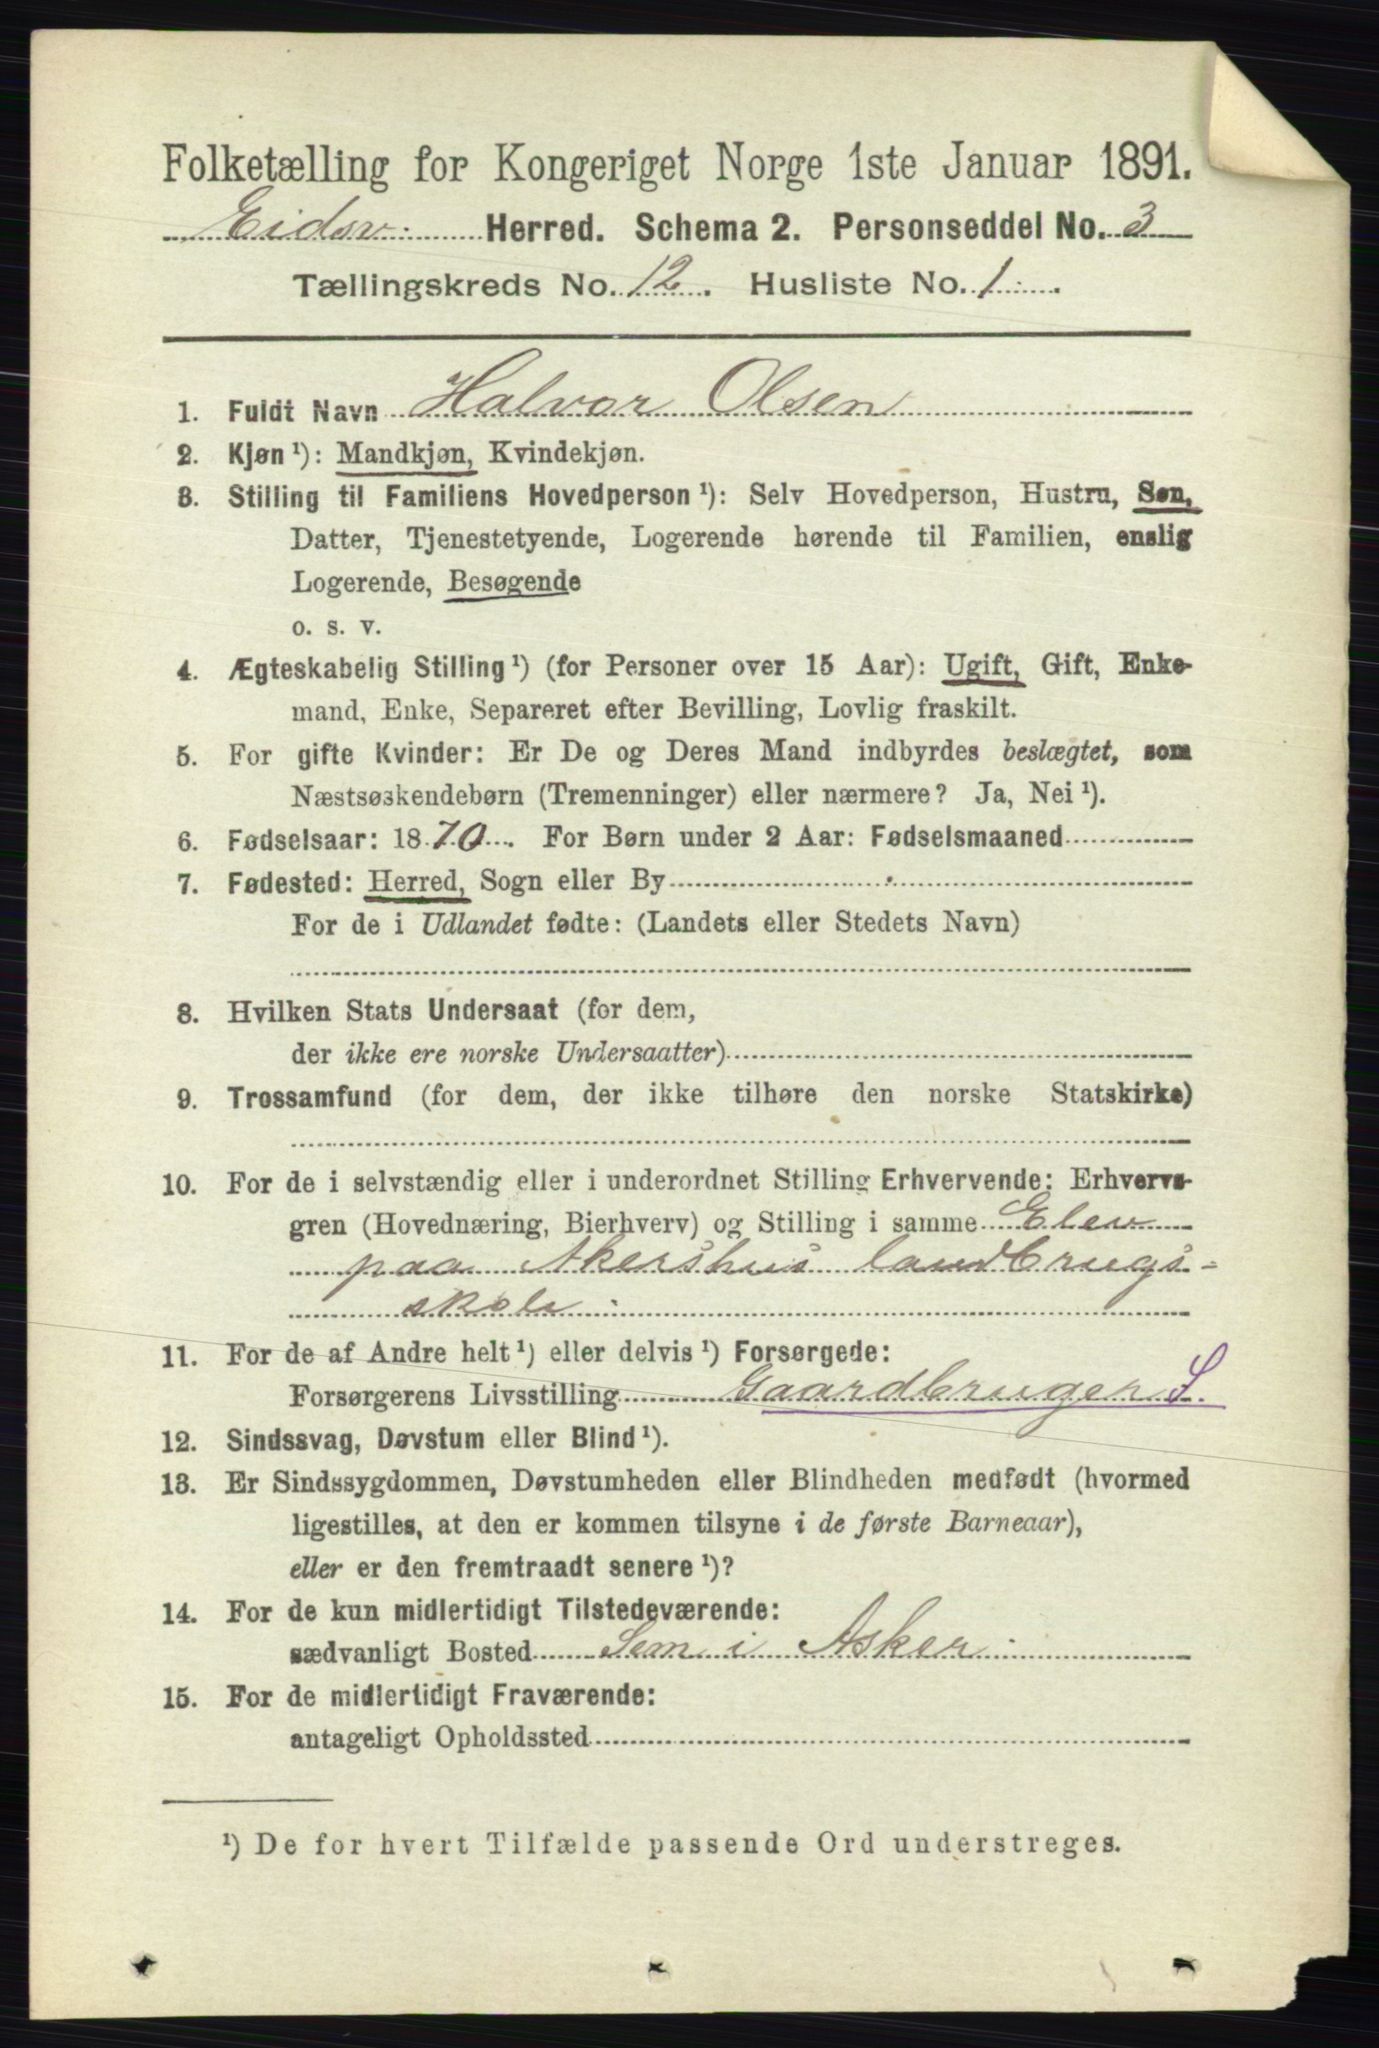 Folketælling for Kongeriget Norge 1ste Januar 1891.
Eidsv: Herred. Schema 2. Personseddel No. 3
Tællingskreds No. 12. Husliste No. 1.
1. Fuldt Navn Halvor Olsen
2. Kjøn ¹): Mandkjøn, Kvindekjøn.
3. Stilling til Familiens Hovedperson ¹): Selv Hovedperson, Hustru, Søn,
Datter, Tjenestetyende, Logerende hørende til Familien, enslig
Logerende, Besøgende
o. s. v.
4. Ægteskabelig Stilling ¹) (for Personer over 15 Aar): Ugift, Gift, Enke-
mand, Enke, Separeret efter Bevilling, Lovlig fraskilt.
5. For gifte Kvinder: Er De og Deres Mand indbyrdes beslægtet, som
Næstsøskendebørn (Tremenninger) eller nærmere? Ja, Nei ¹).
6. Fødselsaar: 1870. For Børn under 2 Aar: Fødselsmaaned
7. Fødested: Herred, Sogn eller By
For de i Udlandet fødte: (Landets eller Stedets Navn)
8. Hvilken Stats Undersaat (for dem,
der ikke ere norske Undersaatter)
9. Trossamfund (for dem, der ikke tilhøre den norske Statskirke)
10. For de i selvstændig eller i underordnet Stilling Erhvervende: Erhvervs-
gren (Hovednæring, Bierhverv) og Stilling i samme Elev
paa Akershus landbrugs-
skole.
11. For de af Andre helt ¹) eller delvis ¹) Forsørgede:
Forsørgerens Livsstilling Gaardbruger S.
12. Sindssvag, Døvstum eller Blind ¹).
13. Er Sindssygdommen, Døvstumheden eller Blindheden medfødt (hvormed
ligestilles, at den er kommen tilsyne i de første Barneaar),
eller er den fremtraadt senere ¹)?
14. For de kun midlertidigt Tilstedeværende:
sædvanligt Bosted Sem i Asker.
15. For de midlertidigt Fraværende:
antageligt Opholdssted
¹) De for hvert Tilfælde passende Ord understreges.